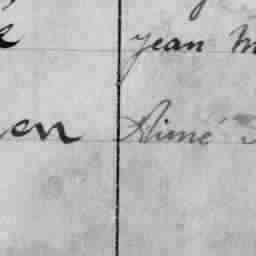 Jean M
en Aimé